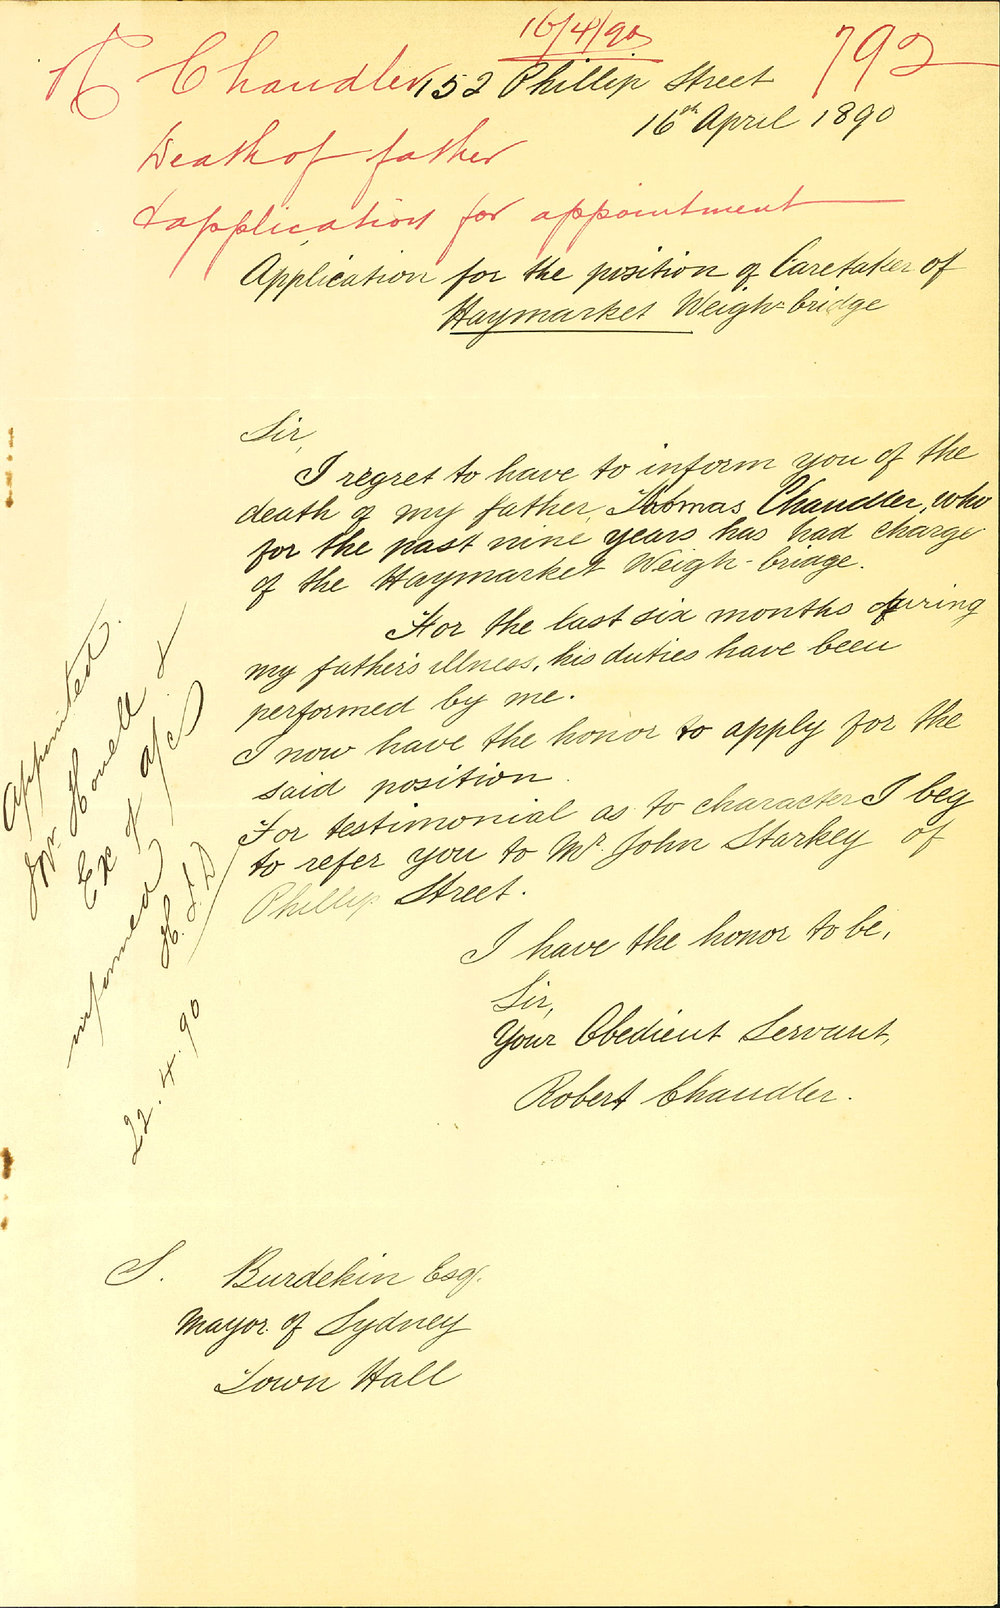 16/4/90
792
R Chandler
152 Phillip Street
16th April 1890
Death of father
& application for appointment
Application for the position of Caretaker of
Haymarket Weigh-bridge
Sir,
I regret to have to inform you of the
death of my father, Thomas Chandler, who
for the past nine years has had charge
of the Haymarket Weigh-bridge.
For the last six months during
my father's illness, his duties have been
performed by me.
I now have the honor to apply for the
said position.
For testimonial as to character I beg
to refer you to Mr. John Starkey of
Phillip Street.
I have the honor to be,
Sir,
Your Obedient Servant,
Robert Chandler.
Appointed.
Mr Howell &
Ex of a/cs
informed
H.S.D
22.4.90
S. Burdekin Esq.
Mayor of Sydney
Town Hall